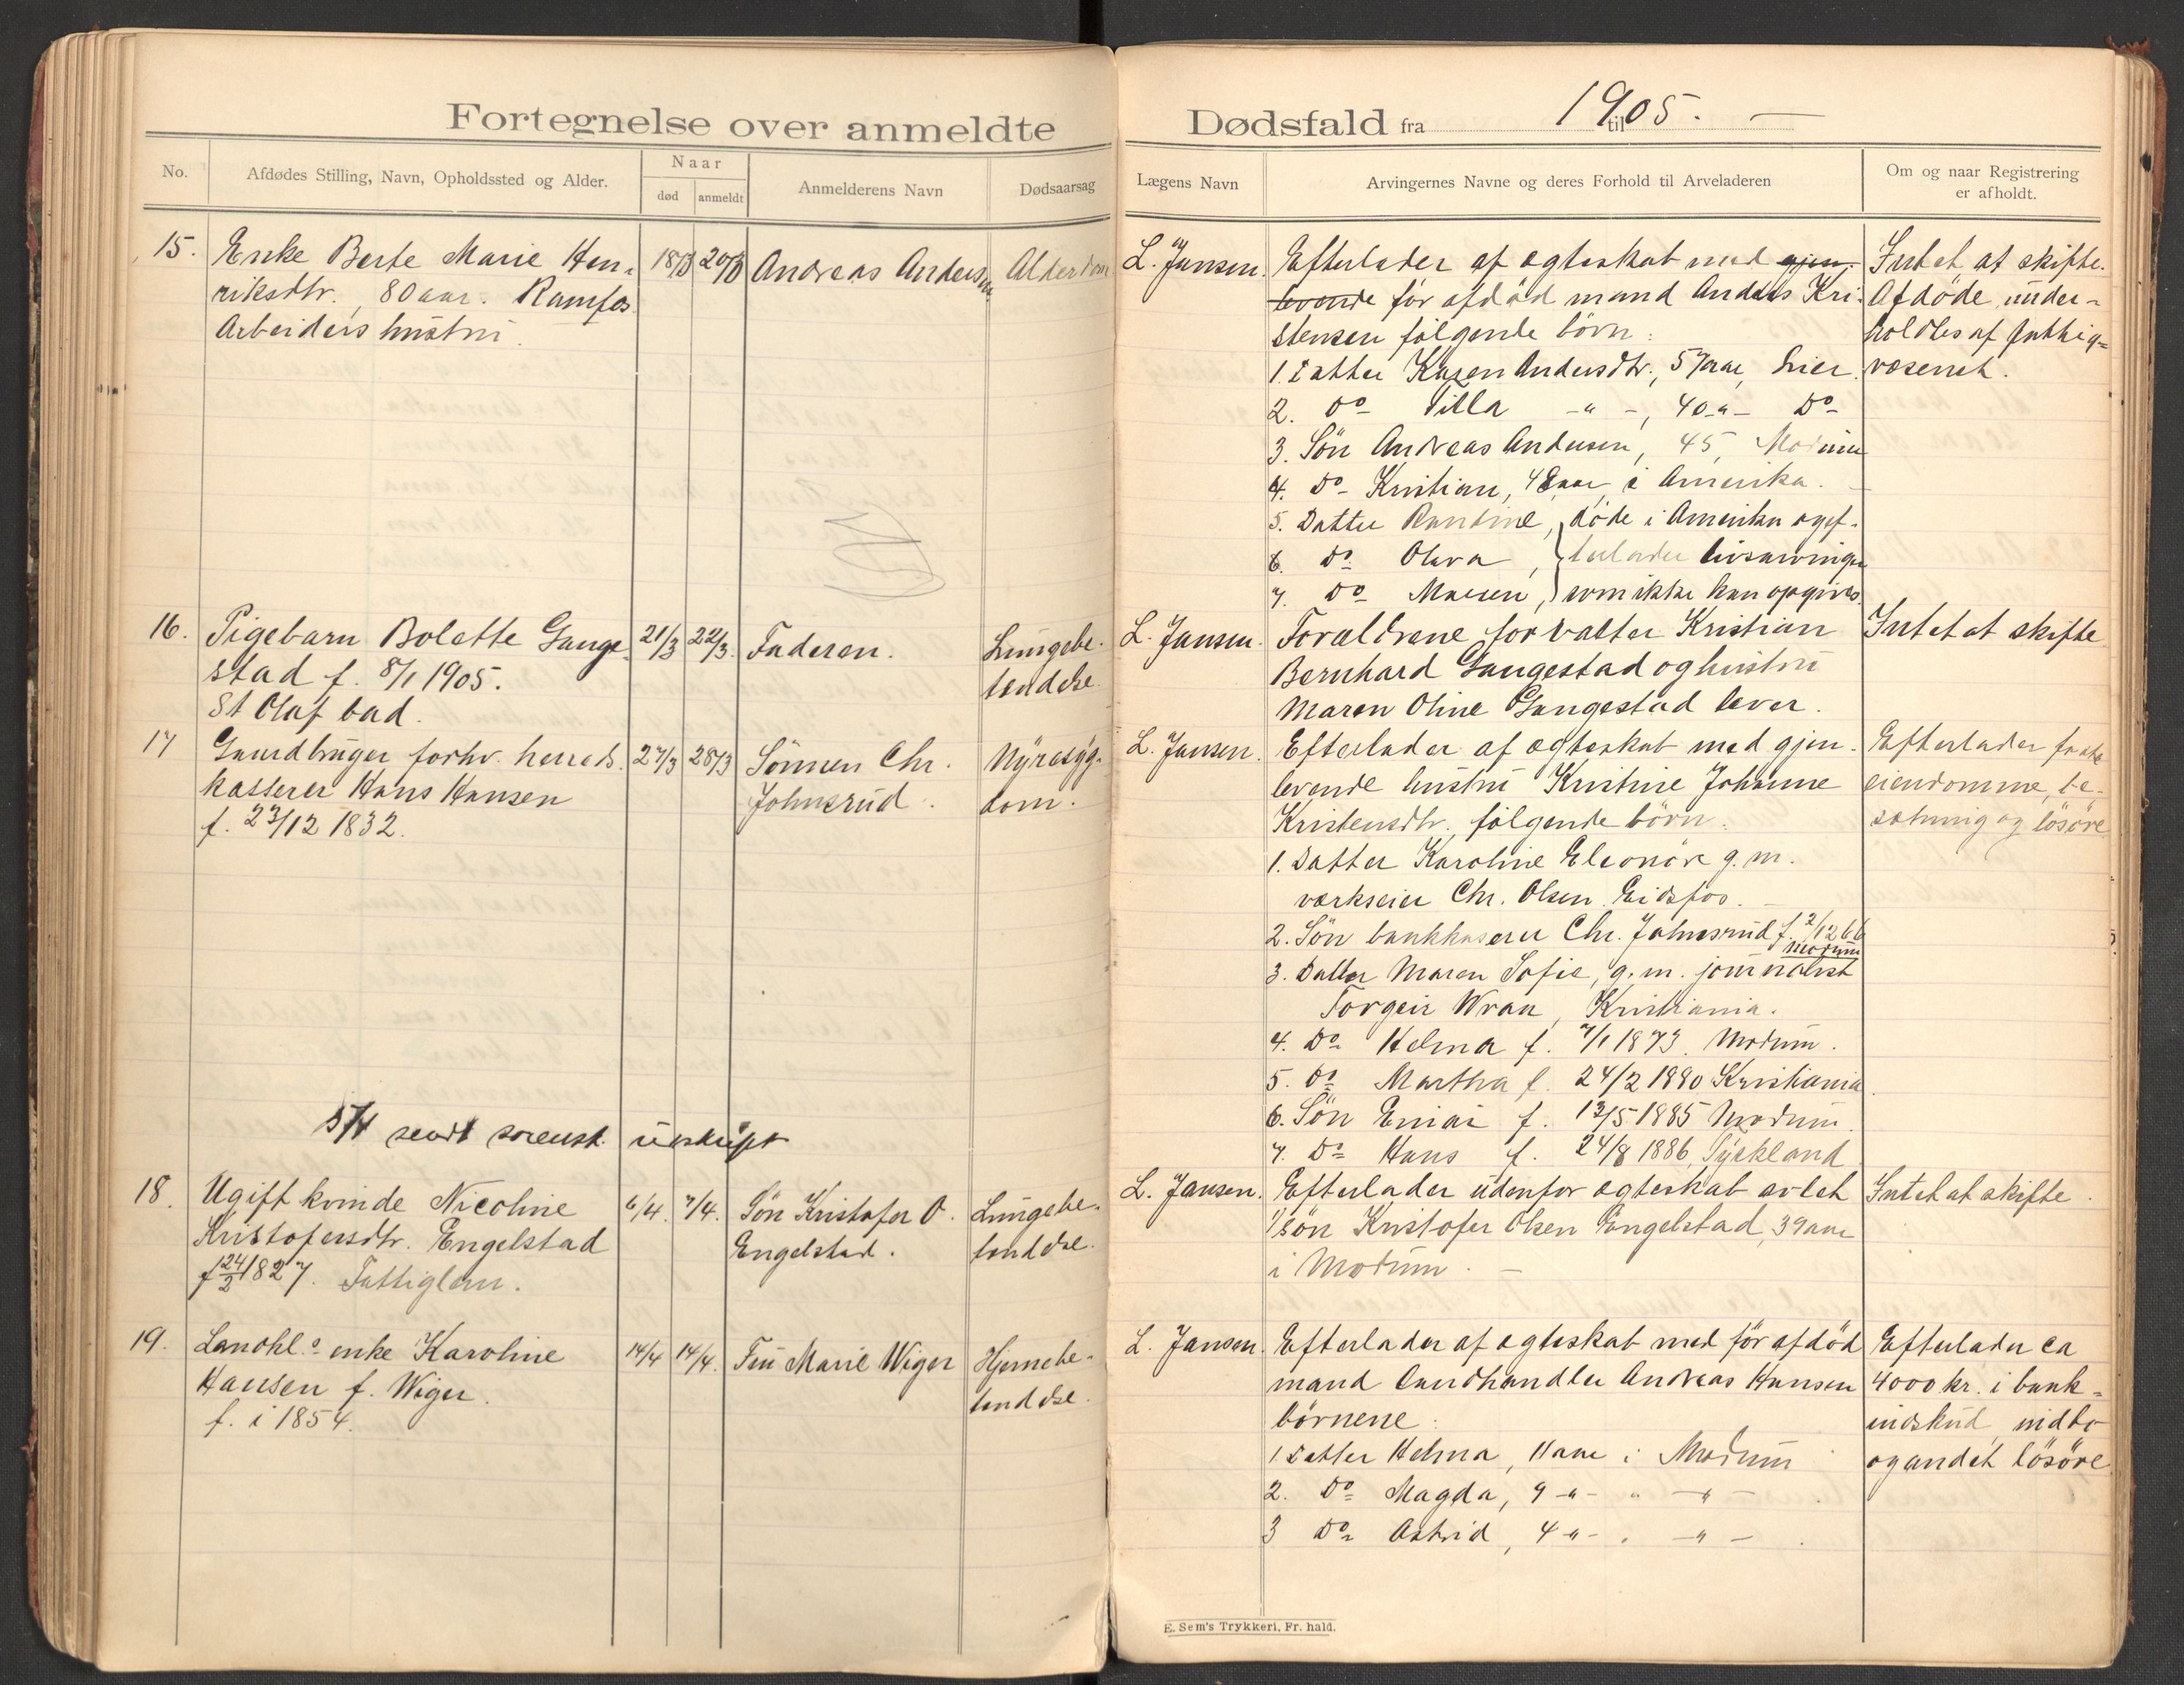 Fortegnelse over anmeldte
No.
Afdødes Stilling, Navn, Opholdssted og Alder.
Naar
død
anmeldt
Anmelderens Navn
Dødsaarsag
15.
Enke Berte Marie Hen-
riksdtr., 80 aar. Ramfos
Arbeiders hustru.
18/3
20/3
Andreas Andersen
Alderdom
16.
Pigebarn Bolette Gange-
stad f. 8/1 1905.
St Olaf bad.
21/3
22/3.
Faderen.
Lungebe-
tændelse.
17
Gaardbruger forhv. herreds-
kasserer Hans Hansen
f. 23/12 1832.
27/3
28/3
Sønnen Chr.
Johnsrud.
Nyresyg-
dom.
5/4 sendt sorensk. udskrift
18.
Ugift kvinde Nicoline
Kristofersdtr. Engelstad
f 24/2 1827. Fattiglem.
6/4.
7/4.
Søn Kristofer O.
Engelstad.
Lungebe-
tændelse.
19.
Landhl.s enke Karoline
Hansen f. Wiger.
f. i 1854.
14/4
14/4.
Fru Marie Wiger
Hjernebe-
tændelse.
Dødsfald fra 1905. — til
Lægens Navn
Arvingernes Navne og deres Forhold til Arveladeren
Om og naar Registrering
er afholdt.
L. Jansen.
Efterlader af ægteskab med gjen-
levende før afdød mand Anders Kri-
stensen følgende børn:
1. Datter Karen Andersdtr., 57 aar, Lier.
2. Do Tilla -"-, 40 -"- Do
3. Søn Andreas Andersen, 45, Modum
4. Do Kristian, 48 aar, i Amerika.
5. Datter Randine, døde i Amerika og ef-
6. Do Oleva, terlader livsarvinger
7. Do Maren, som ikke kan opgives.
Intet at skifte.
Afdøde under-
holdtes af fattig-
væsenet.
L. Jansen.
Forældrene forvalter Kristian
Bernhard Gangestad og hustru
Maren Oline Gangestad lever.
Intet at skifte
L. Jansen.
Efterlader af ægteskab med gjen-
levende hustru Kristine Johanne
Kristensdtr. følgende børn:
1. Datter Karoline Eleonore g. m.
værkseier Chr. Olsen Eidsfos.
2. Søn bankkaserer Chr. Johnsrud f. 2/12 66
Modum
3. Datter Maren Sofie, g. m. journalist
Torgeir Wraa, Kristiania.
4. Do Helma f. 7/1 1873. Modum.
5. Do Martha f. 24/2 1880 Kristiania
6. Søn Einar f. 13/5 1885 Modum.
7. Do Hans f. 24/8 1886, Tyskland
Efterlader faste
eiendomme, be-
sætning og løsøre
L. Jansen.
Efterlader udenfor ægteskab avlet
1) søn Kristofer Olsen Engelstad, 39 aar
i Modum. —
Intet at skifte.
L. Jansen.
Efterlader af ægteskab med før afdød
mand landhandler Andreas Hansen
børnene:
1. Datter Helma, 11 aar i Modum
2. Do Magda, 9 -"- " -"-
3 Do Astrid, 4 -"- " -"-
Efterlader ca
4000 kr. i bank-
indskud, indbo
og andet løsøre
E. Sem's Trykkeri, Fr. hald.